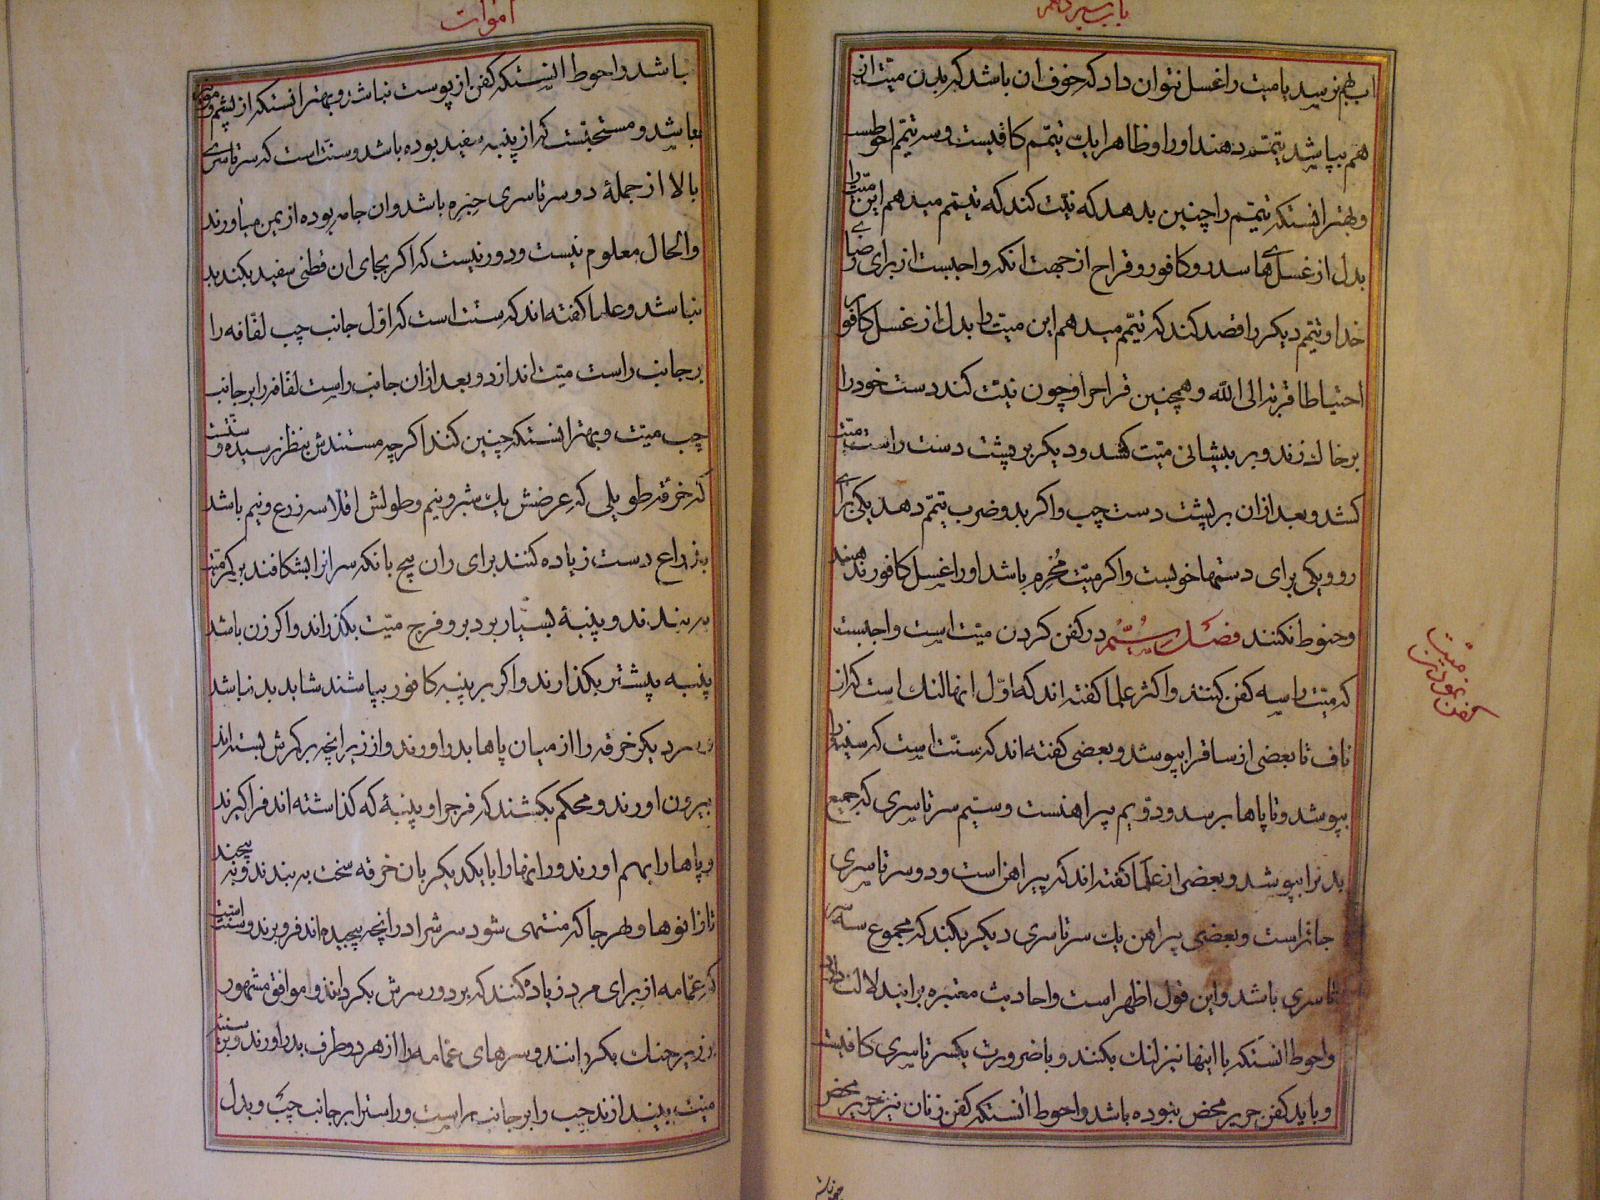 باب سیزدهم
اب بهم نرسد یا میت را غسل نتوان داد که خوف ان باشد که بدن میّت از
هم بپاشد تیمّم دهند او را و ظاهرا یک تیمّم کافیست و سه تیمّم احوطست
و بهتر انستکه تیمّم را چنین بدهد که نیّت کند که تیمّم میدهم این میّت را
بدل از غسل های سدر و کافور و قراح از جهت انکه واجبست از برای رضای
خدا و تیمّم دیکر را قصد کند که تیمّم میدهم این میّت را بدل از غسل کافور
احتیاطا قربة الی الله و همچنین قراح را و چون نیّت کند دست خود را
بر خاک زند و بر پیشانی میّت کشد و دیکر بر پشت دست راست میّت
کشد و بعد از ان بر پشت دست چپ و اکر بدو ضرب تیمّم دهد یکی برای
رو و یکی برای دستها خوبست و اکر میّت مُحْرِم باشد او را غسل کافور ندهند
و حنوط نکنند فصل سیّم در کفن کردن میّت است و واجبست
که میّت را سه کفن کنند و اکثر علما کفته اند که اوّل انها لنک است که از
ناف تا بعضی از ساق را بپوشد و بعضی کفته اند که سنّت است که سینه را
بپوشد و تا پاها برسد و دوّیم پیراهنست و سیّم سرتاسری که جمیع
بدنرا بپوشد و بعضی از علما کفته اند که پیراهن است و دو سرتاسری
جائز است و بعضی پیراهن یک سرتاسری دیکر بکنند که مجموع سه سر
تاسری باشد و این قول اظهر است و احادیث معتبره بر اینند دلالت دارد
و احوط انستکه با اینها نیز لنک بکنند و با ضرورت یکسرتاسری کافیست
و باید کفن حریر محض نبوده باشد و احوط انستکه کفن زنان نیز حریر محض
کفن نمودن میّت
اموات
باشد و احوط اینستکه کفن از پوست نباشد و بهتر انستکه از پشم و موی
نباشد و مستحبّست که از پنبه سفید بوده باشد و سنّت است که سرتاسری
بالا از جملهٔ دو سرتاسری حِبَره باشد و ان جامه بوده از یمن میاورند
و الحال معلوم نیست و دور نیست که اکر بجای ان قطنی سفید بکنند بد
نباشد و علما کفته اند که سنّت است که اوّل جانب چپ لفّافه را
بر جانب راست میّت اندازد و بعد از ان جانب راست لفّافه را بر جانب
چپ میّت و بهتر انستکه چنین کنند اکرچه مستندش بنظر نرسیده و سنّتست
که خرقهٔ طویلی که عرضش یک شبر و نیم و طولش اقلا سه ذرع و نیم باشد
بذراع دست زیاده کنند برای ران پیچ بانکه سر انرا بشکافند بر کمر میّت
به بندند و پنبهٔ بسیار بر دبر و فرج میّت بکذراند و اکر زن باشد
پنبه پیشتر بکذارند و اکر بر پنبه کافور بپاشند شاید بد نباشد
سر دیکر خرقه را از میان پاها بدر اورند و از زیر انچه بر کمرش بسته اند
بیرون اورند و محکم بکشند که فرج او پنبهٔ که کذاشته اند فرا کیرند
و پاها را بهم اورند و رانها را با یکدیکر بان خرقه سخت به بندند و به پیچند
تا زانوها و بهر جا که منتهی شود سرشرا در انچه پیچیده اند فرو برند و سنّت است
که عمّامه از برای مرد زیاد کنند که بر دور سرش بکردانند و موافق مشهور
بر زیر حنک بکردانند و سرهای عمّامه را از هر دو طرف بدر اورند و بر سینهٔ
میّت بیندازند چپ را بر جانب راست و راسترا بر جانب چپ و بدل